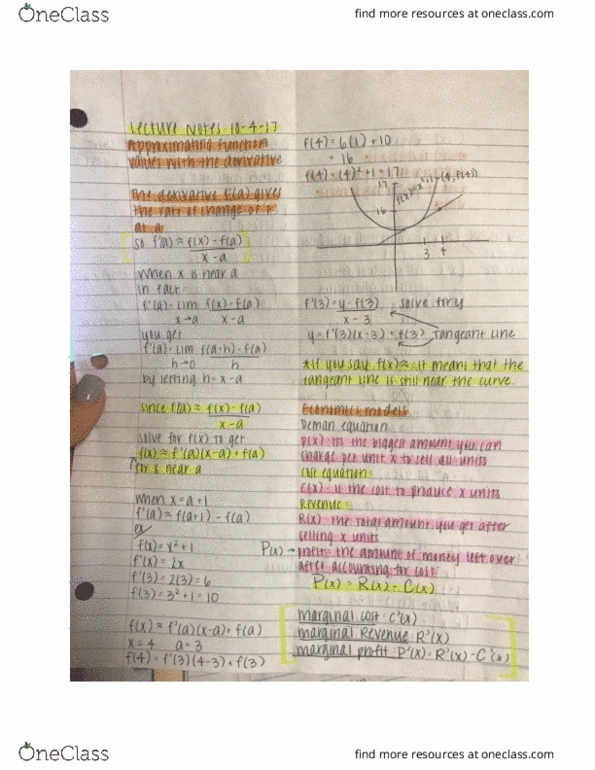 OneClass
find more resources at oneclass.com
Lecture Notes 10-4-17
Approximating Function
values with the derivative
The derivative f'(a) gives
the rate of change of f
at a
so f'(a) ≈ f(x) - f(a)
x - a
When x is near a
in fact
f'(a) = lim f(x) - f(a)
x→a x - a
you get
f'(a) = lim f(a+h) - f(a)
h→0 h
by setting h = x - a
since f'(a) ≈ f(x) - f(a)
x - a
solve for f(x) to get
f(x) ≈ f'(a)(x-a) + f(a)
for x near a
when x = a + 1
f'(a) ≈ f(a+1) - f(a)
ex
f(x) = x² + 1
f'(x) = 2x
f'(3) = 2(3) = 6
f(3) = 3² + 1 = 10
f(x) ≈ f'(a)(x-a) + f(a)
x = 4 a = 3
f(4) = f'(3)(4-3) + f(3)
f(4) = 6(1) + 10
= 16
f(4) = (4)² + 1 = 17
17
f(x) = x² + 1
(4, f(4))
16
3 4
f'(3) = y - f(3) solve for y
x - 3
y = f'(3)(x-3) + f(3) Tangeant Line
* if you say f(x) ≈ it means that the
tangeant line is still near the curve.
Economics models
Deman equation
p(x) is the biggest amount you can
charge per unit x to sell all units
equation:
C(x) - is the cost to produce x units
Revenue:
R(x) the total amount you get after
selling x units
P(x) → profit: the amount of money left over
after accounting for cost
P(x) = R(x) - C(x)
marginal cost: C'(x)
marginal Revenue: R'(x)
marginal profit: P'(x) = R'(x) - C'(x)
OneClass
find more resources at oneclass.com